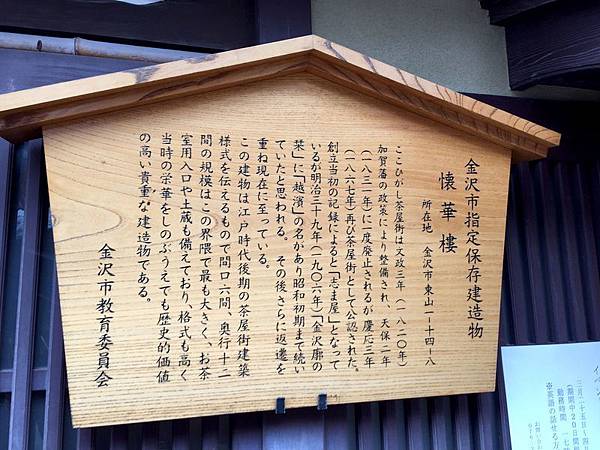 金沢市指定保存建造物
懐華樓
所在地 金沢市東山一ー十四ー八
ここひがし茶屋街は文政三年(一八二〇年)
加賀藩の政策により整備され、天保二年
(一八三一年)に一度廃止されるが慶応三年
(一八六七年)再び茶屋街として公認された。
創立当初の記録によると「志ま屋」となって
いるが明治三十九年(一九〇六年)「金沢廓の
栞」に「越濱」の名があり昭和初期まで続い
ていたと思われる。その後さらに返遷を
重ね現在に至っている。
この建物は江戸時代後期の茶屋街建築
様式を伝えるもので間口六間、奥行十二
間の規模はこの界隈で最も大きく、お茶
室用入口や土蔵も備えており、格式も高く
当時の栄華をしのぶうえでも歴史的価値
の高い貴重な建造物である。
金沢市教育委員会
三月二十五日〜四月
(期間中20日間
勤務時間
※英語の話せる方